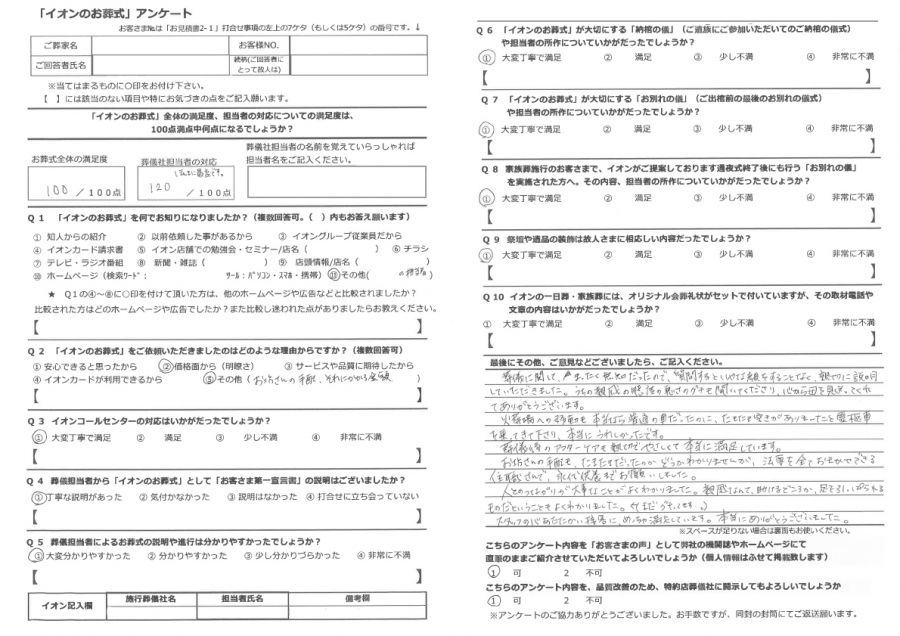 「イオンのお葬式」アンケート
お客さま№は「お見積書2-1」打合せ事項の左上の7ケタ（もしくは5ケタ）の番号です。↓
ご葬家名 お客様NO.
ご回答者氏名 続柄(ご回答者にとって故人は)
※当てはまるものに〇印をお付け下さい。
【 】には該当のない項目や特にお気づきの点をご記入願います。
「イオンのお葬式」全体の満足度、担当者の対応についての満足度は、
100点満点中何点になるでしょうか？
お葬式全体の満足度 葬儀社担当者の対応 葬儀社担当者の名前を覚えていらっしゃれば
担当者名をご記入ください。
100 ／100点 120 ／100点
Ｑ１ 「イオンのお葬式」を何でお知りになりましたか？（複数回答可。（ ）内もお答え願います）
① 知人からの紹介 ② 以前依頼した事があるから ③ イオングループ従業員だから
④ イオンカード請求書 ⑤ イオン店舗での勉強会・セミナー/店名（ ） ⑥ チラシ
⑦ テレビ・ラジオ番組 ⑧ 新聞・雑誌（ ） ⑨ 店頭情報/店名（ ）
⑩ ホームページ（検索ﾜｰﾄﾞ： ﾂｰﾙ：ﾊﾟｿｺﾝ・ｽﾏﾎ・携帯） ⑪その他( の担当者)
★ Ｑ１の④～⑩に〇印を付けて頂いた方は、他のホームページや広告などと比較されましたか？
比較された方はどのホームページや広告でしたか？また比較し迷われた点がありましたらお教えください。
【 】
Ｑ２ 「イオンのお葬式」をご依頼いただきましたのはどのような理由からですか？（複数回答可）
①安心できると思ったから ②価格面から（明瞭さ） ③サービスや品質に期待したから
④イオンカードが利用できるから ⑤その他（お坊さんの手配、それにかかる金額）
【 】
Ｑ３ イオンコールセンターの対応はいかがだったでしょうか？
① 大変丁寧で満足 ② 満足 ③ 少し不満 ④ 非常に不満
【 】
Ｑ４ 葬儀担当者から「イオンのお葬式」として「お客さま第一宣言書」の説明はございましたか？
①丁寧な説明があった ②気付かなかった ③説明はなかった ④打合せに立ち会っていない
【 】
Ｑ５ 葬儀担当者によるお葬式の説明や進行は分かりやすかったでしょうか？
①大変分かりやすかった ②分かりやすかった ③少し分かりづらかった ④非常に不満
【 】
イオン記入欄 施行葬儀社名 担当者氏名 備考欄
Ｑ６ 「イオンのお葬式」が大切にする「納棺の儀」（ご遺族にご参加いただいてのご納棺の儀式）
や担当者の所作についていかがだったでしょうか？
① 大変丁寧で満足 ② 満足 ③ 少し不満 ④ 非常に不満
【 】
Ｑ７ 「イオンのお葬式」が大切にする「お別れの儀」（ご出棺前の最後のお別れの儀式）
や担当者の所作についていかがだったでしょうか？
① 大変丁寧で満足 ② 満足 ③ 少し不満 ④ 非常に不満
【 】
Ｑ８ 家族葬施行のお客さまで、イオンがご提案しております通夜式終了後にも行う「お別れの儀」
を実施された方へ。その内容、担当者の所作についていかがだったでしょうか？
① 大変丁寧で満足 ② 満足 ③ 少し不満 ④ 非常に不満
【 】
Ｑ９ 祭壇や遺品の装飾は故人さまに相応しい内容だったでしょうか？
① 大変丁寧で満足 ② 満足 ③ 少し不満 ④ 非常に不満
【 】
Ｑ10 イオンの一日葬・家族葬には、オリジナル会葬礼状がセットで付いていますが、その取材電話や
文章の内容はいかがだったでしょうか？
① 大変丁寧で満足 ② 満足 ③ 少し不満 ④ 非常に不満
【 】
最後にその他、ご意見などございましたら、ご記入ください。
葬儀に関して、まったく無知だったので、質問するといやな顔をすることなく、親切に説明
していただきました。うちの親戚の態度の悪さのグチも聞いてくださり、心から母を見送ってくれ
てありがとうございます。
火葬場への移動も本当なら普通の車だったのに、たまたま空きがありましたと霊柩車
を出してきて下さり、本当にうれしかったです。
葬儀後のアフターケアも親切でやさしくて本当に満足しています。
お坊さんの手配も、たまたまだったのかどうかわかりませんが、法要を全ておまかせできる
住職さんで、永代供養までお願いしました。
人とのつながりが大事なことがよくわかりました。親戚なんて、助けるどころか、足をひっぱられる
ものだということもよくわかりました。
スタッフの心あたたかい接客に、めっちゃ満足しています。本当にありがとうございました。
※スペースが足りない場合は裏面もお使いください。
こちらのアンケート内容を「お客さまの声」として弊社の機関誌やホームページにて
直筆のままご紹介させていただいてよろしいでしょうか（個人情報はふせて掲載致します）
1 可 2 不可
こちらのアンケート内容を、品質改善のため、特約店葬儀社に開示してもよろしいでしょうか
1 可 2 不可
※アンケートのご協力ありがとうございました。お手数ですが、同封の封筒にてご返送願います。